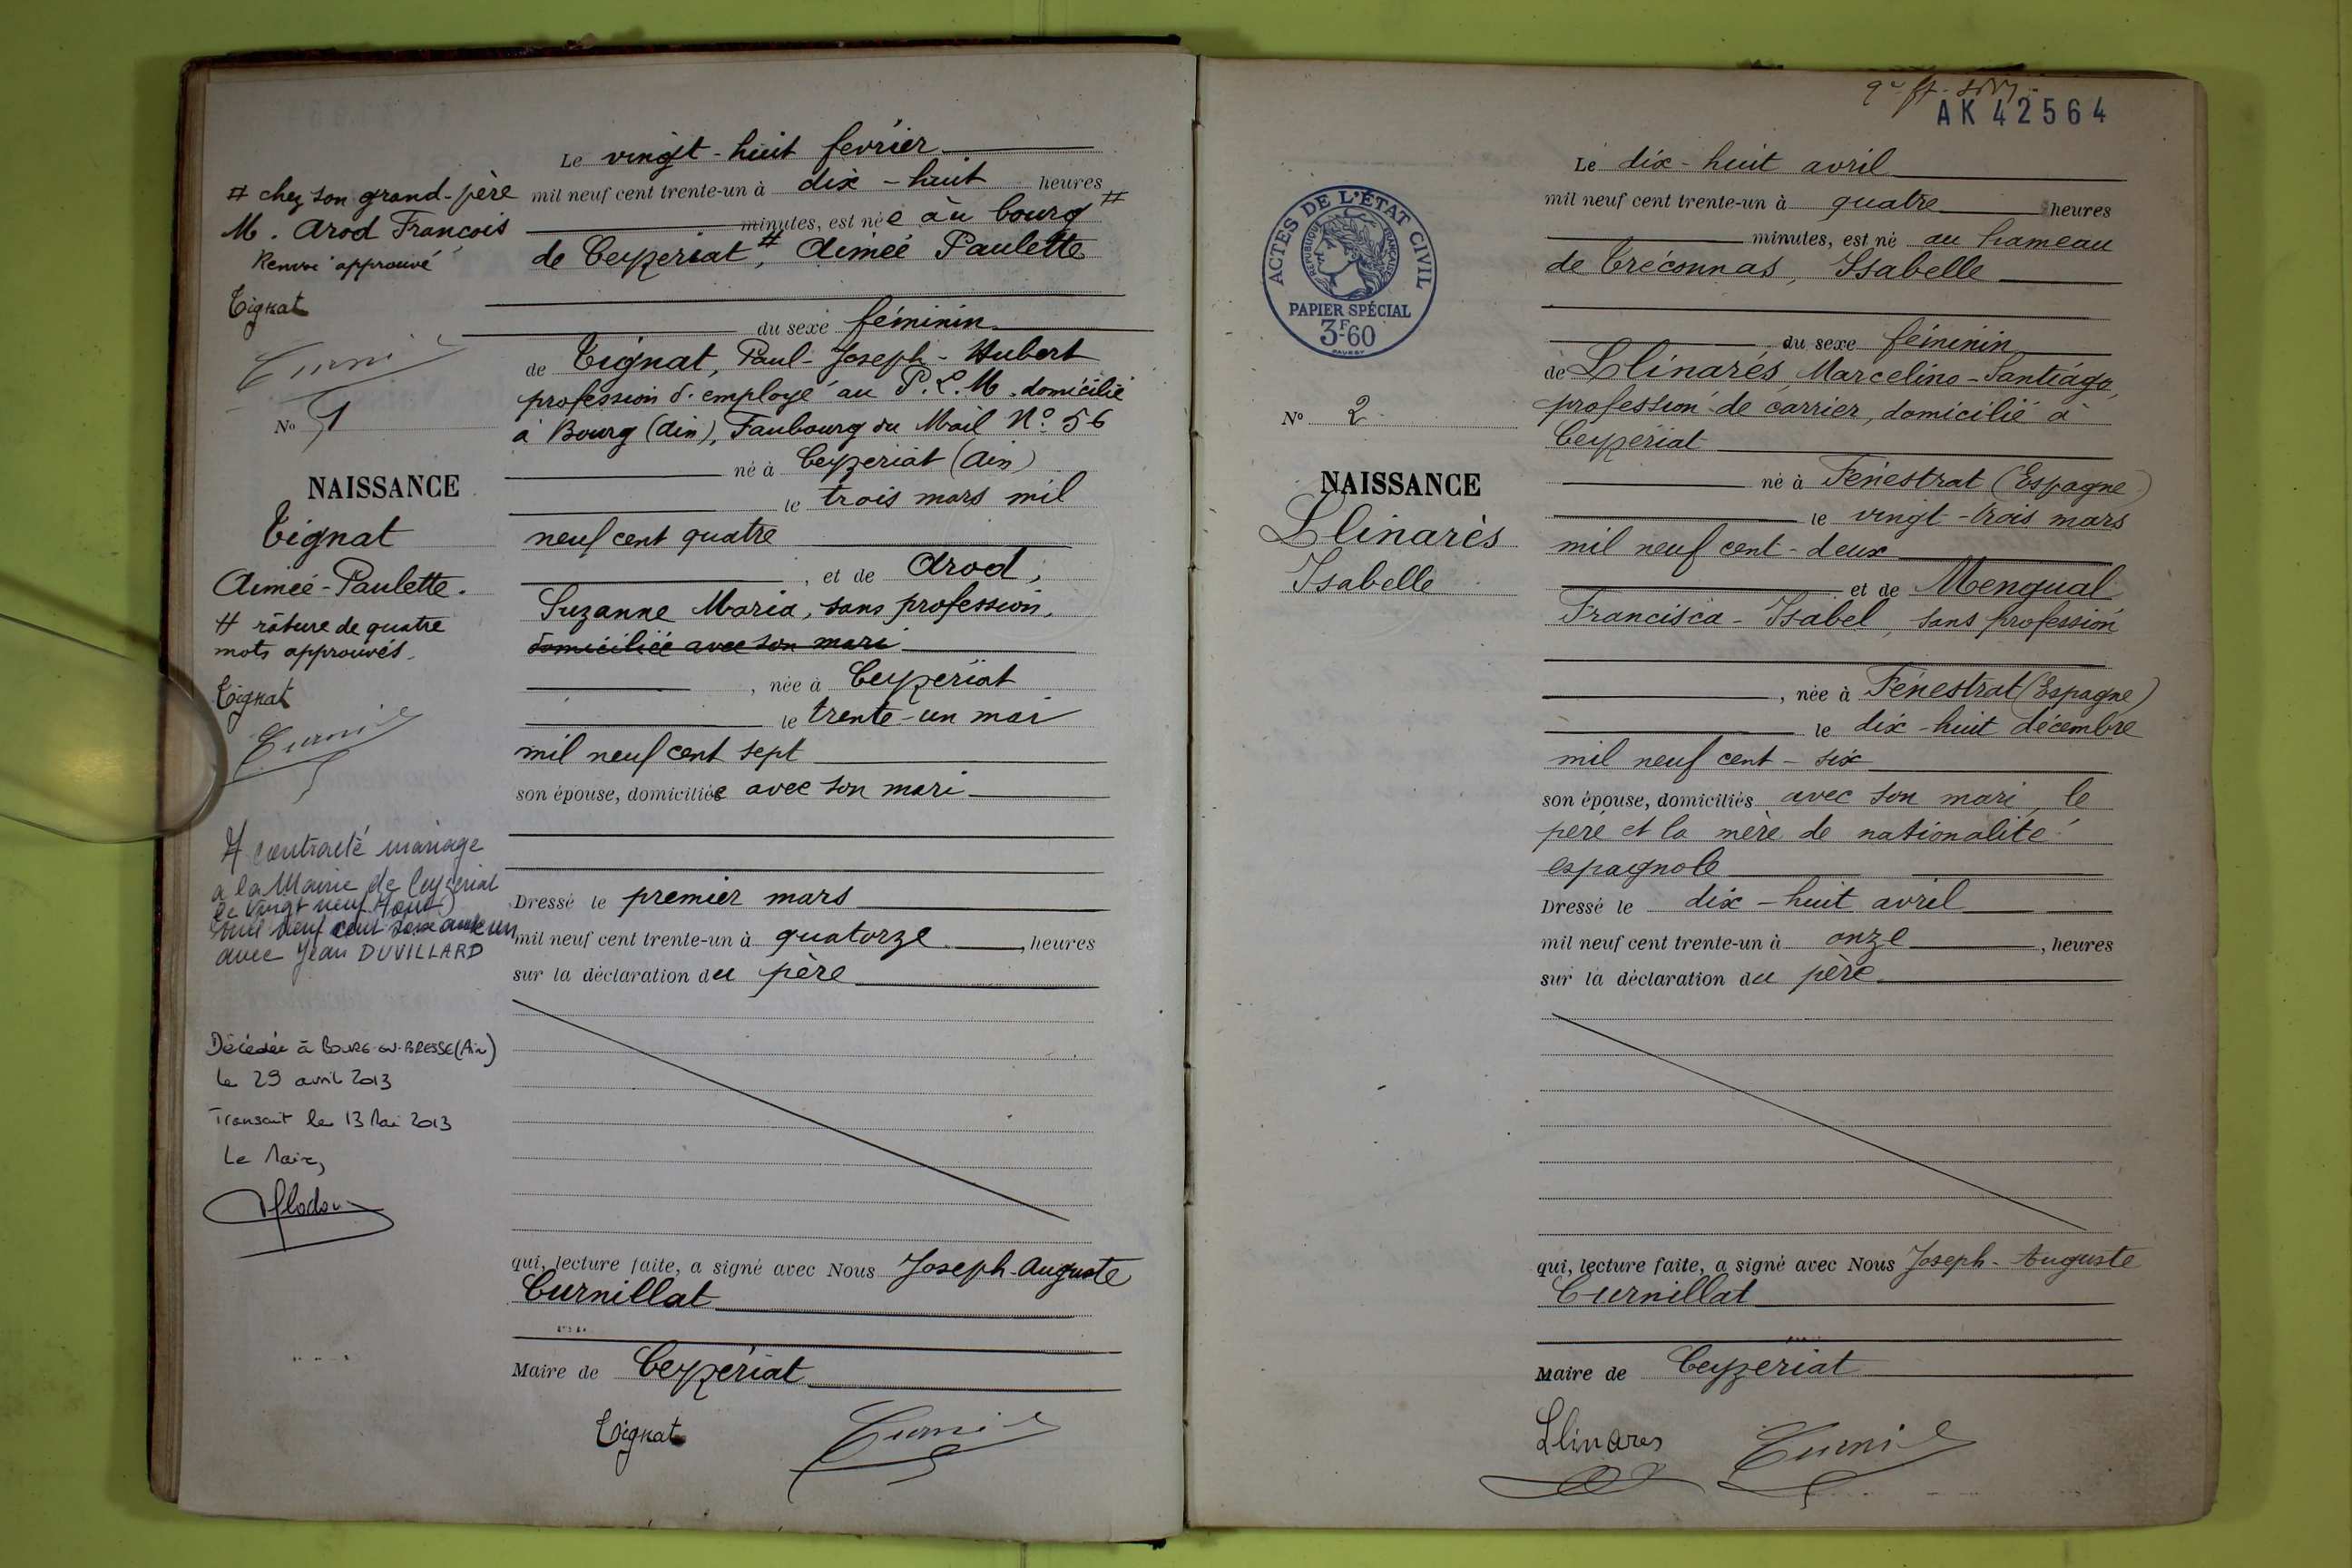 # chez son grand-père
M. Arod François
Renvoi approuvé
Tignat
No 1
NAISSANCE
Tignat
Aimée-Paulette.
# râture de quatre
mots approuvés.
Tignat
A contracté mariage
a la Mairie de Ceyzeriat
le vingt neuf Aout
mil neuf cent soixante un
avec Jean DUVILLARD
Décédée à BOURG-EN-BRESSE (Ain)
le 29 avril 2013
Transcrit le 13 Mai 2013
Le Maire,
Le vingt-huit fevrier
mil neuf cent trente-un à dix-huit heures
minutes, est née au bourg #
de Ceyzeriat #, Aimée Paulette
du sexe féminin
de Tignat, Paul-Joseph-Hubert
profession d'employé au P.L.M. domicilié
à Bourg (Ain), Faubourg du Mail No 56
né à Ceyzeriat (Ain)
le trois mars mil
neuf cent quatre
, et de Arod,
Suzanne Maria, sans profession,
domiciliée avec son mari
, née à Ceyzeriat
le trente-un mai
mil neuf cent sept
son épouse, domiciliée avec son mari
Dressé le premier mars
mil neuf cent trente-un à quatorze , heures
sur la déclaration du père
qui, lecture faite, a signé avec Nous Joseph-Auguste
Curnillat
Maire de Ceyzériat
Tignat
AK 42564
ACTES DE L'ÉTAT CIVIL
RÉPUBLIQUE FRANÇAISE
PAPIER SPÉCIAL
3F60
No 2
NAISSANCE
Llinarès
Isabelle
Le dix-huit avril
mil neuf cent trente-un à quatre heures
minutes, est né au hameau
de Tréconnas, Isabelle
du sexe féminin
de Llinarés, Marcelino-Santiago,
profession de carrier, domicilié à
Ceyzériat
né à Fénestrat (Espagne)
le vingt-trois mars
mil neuf cent-deux
et de Mengual
Francisca-Isabel, sans profession
, née à Fénestrat (Espagne)
le dix-huit décembre
mil neuf cent-six
son épouse, domiciliés avec son mari, le
père et la mère de nationalité
espagnole
Dressé le dix-huit avril
mil neuf cent trente-un à onze , heures
sur la déclaration du père
qui, lecture faite, a signé avec Nous Joseph-Auguste
Curnillat
Maire de Ceyzériat
Llinares